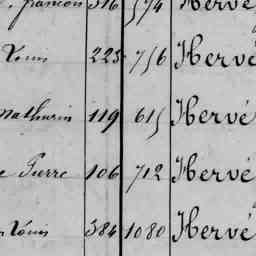 françois 316 574 Hervé
Louis 223 756 Hervé
Mathurin 119 615 Hervé
Pierre 106 712 Hervé
Louis 384 1080 Hervé